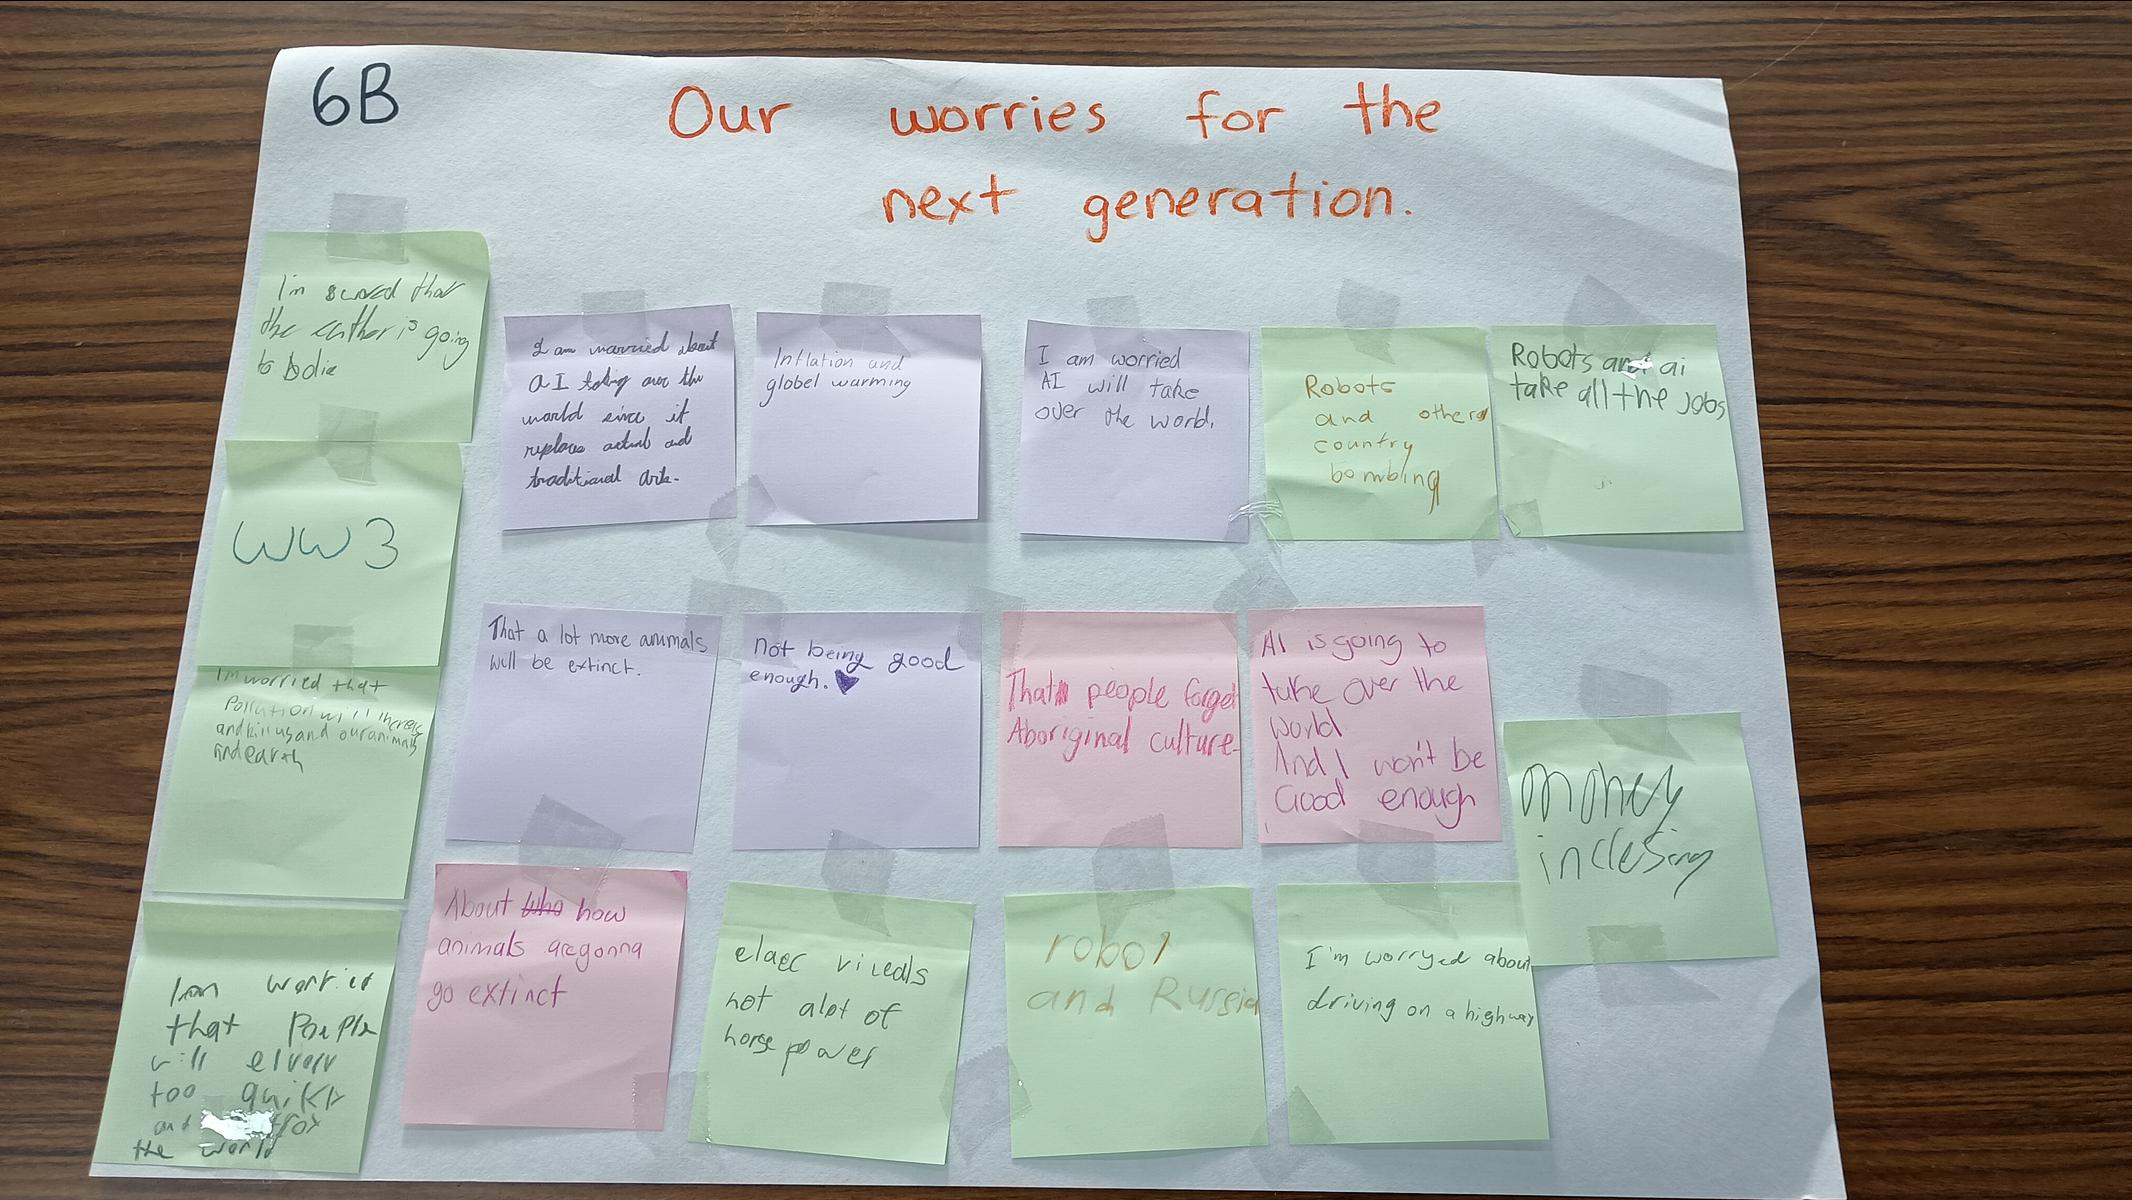 6B
Our worries for the
next generation.
I'm scared that
the earther is going
to bdie
WW3
I'm worried that
Pollution will increes
and kill us and our animals
and earth
I am worried
that People
will
too
and
the world
I am worried about
AI taking over the
world since it
replaces actual and
traditional art.
Inflation and
globel warming
I am worried
AI will take
over the world.
Robots
and others
country
bombing
Robots and ai
take all the jobs
That a lot more animals
will be extinct.
not being good
enough.
That people forget
Aboriginal culture
AI is going to
take over the
world.
And I won't be
Good enough
money
incresing
About who how
animals are gonna
go extinct
elaec viceals
not alot of
horse power
robot
and Russia
I'm worryed about
driving on a highway